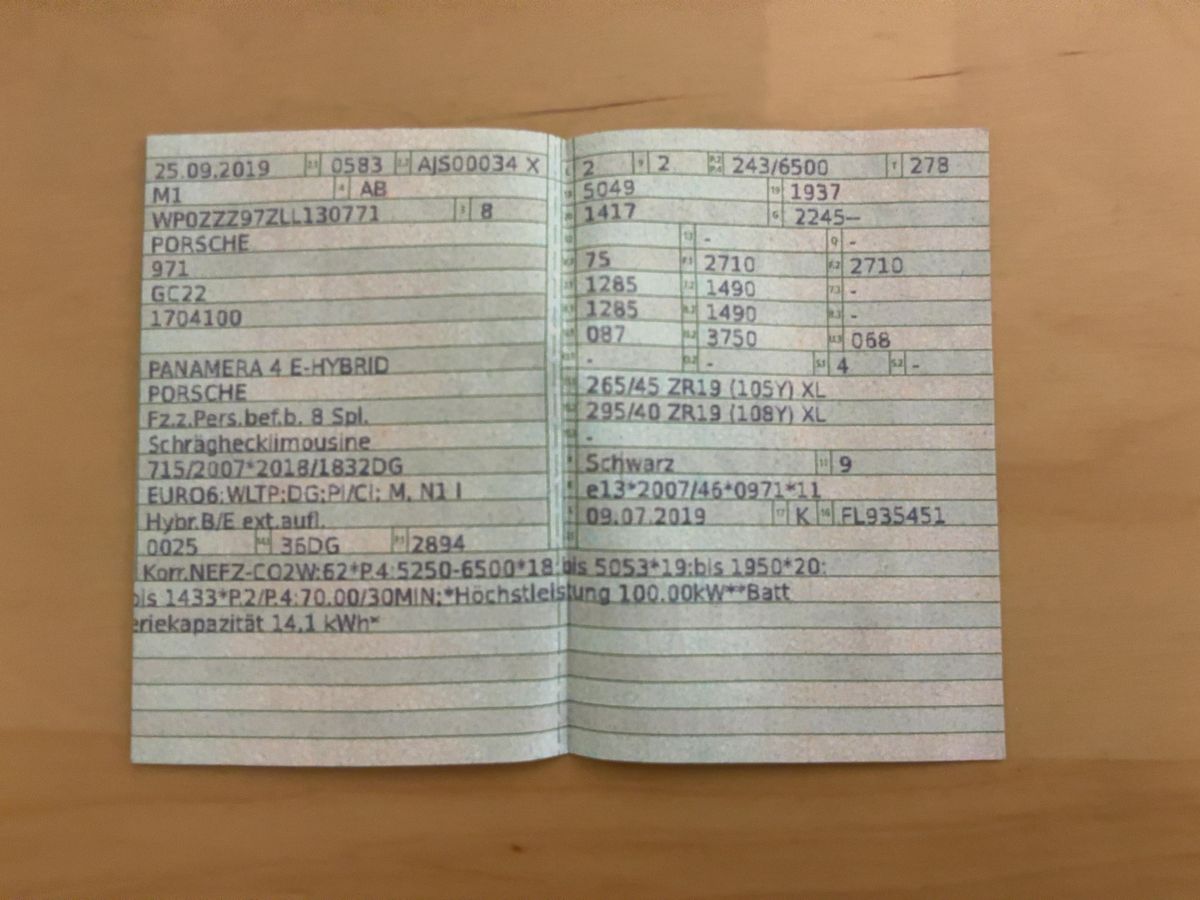 25.09.2019 2.1 0583 2.2 AJS00034 X
M1 4 AB
WP0ZZZ97ZLL130771 3 8
PORSCHE
971
GC22
1704100
PANAMERA 4 E-HYBRID
PORSCHE
Fz.z.Pers.bef.b. 8 Spl.
Schräghecklimousine
715/2007*2018/1832DG
EURO6;WLTP;DG;PI/CI; M, N1 I
Hybr.B/E ext.aufl.
0025 14.1 36DG P.1 2894
2 9 2 P.2 P.4 243/6500 T 278
5049 19 1937
1417 G 2245—
- Q -
75 F.1 2710 F.2 2710
1285 7.2 1490 7.3 -
1285 8.2 1490 8.3 -
087 U.2 3750 U.3 068
- O.2 - S.1 4 S.2 -
265/45 ZR19 (105Y) XL
295/40 ZR19 (108Y) XL
-
Schwarz 11 9
e13*2007/46*0971*11
09.07.2019 17 K 16 FL935451
Korr.NEFZ-CO2W:62*P.4:5250-6500*18:bis 5053*19:bis 1950*20:
bis 1433*P.2/P.4:70.00/30MIN;*Höchstleistung 100.00kW**Batt
eriekapazität 14,1 kWh*